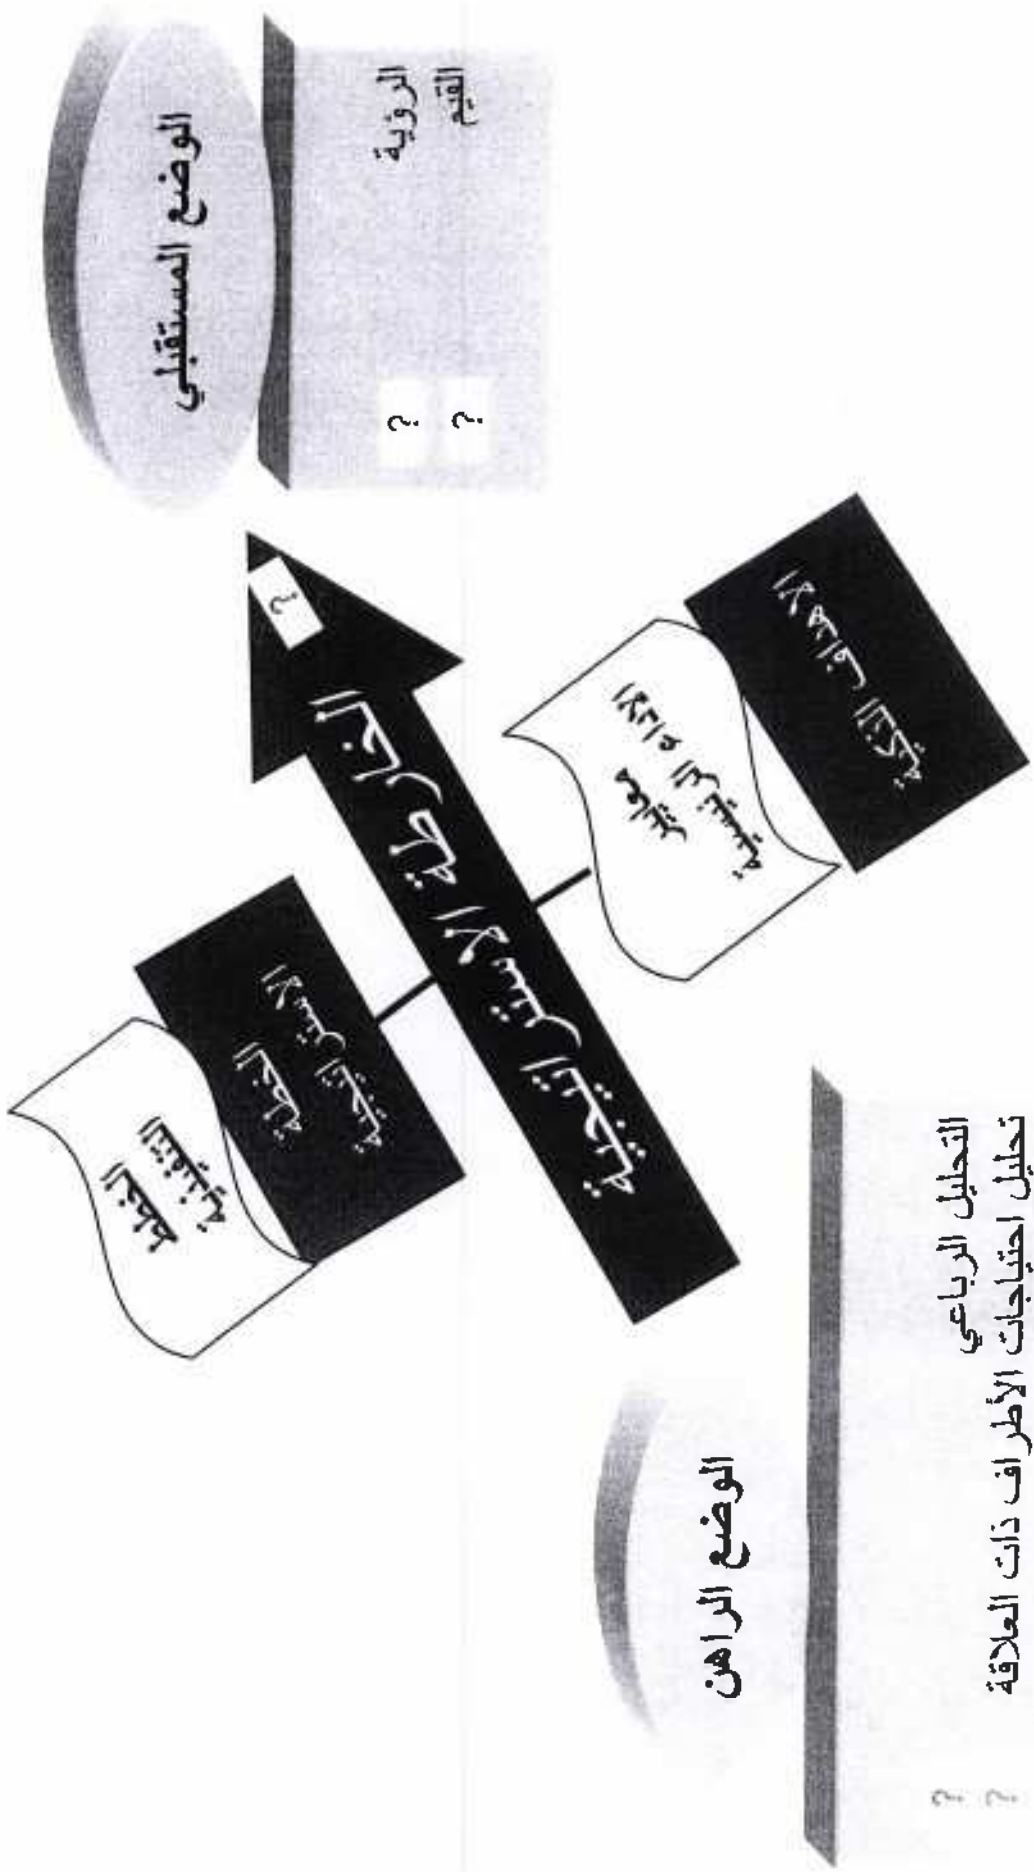 الوضع المستقبلي
؟ الرؤية
؟ القيم
؟
الخارطة الاستراتيجية
الخطط
التنفيذية
الخطة
الاستراتيجية
الاداء
الرئيسية
الاهداف
الذكية
الوضع الراهن
؟ التحليل الرباعي
؟ تحليل احتياجات الأطراف ذات العلاقة